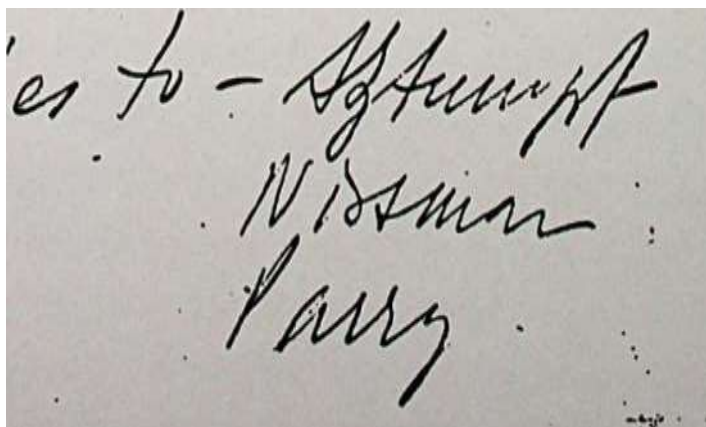 es to - Sztumpf
Nissman
Parry